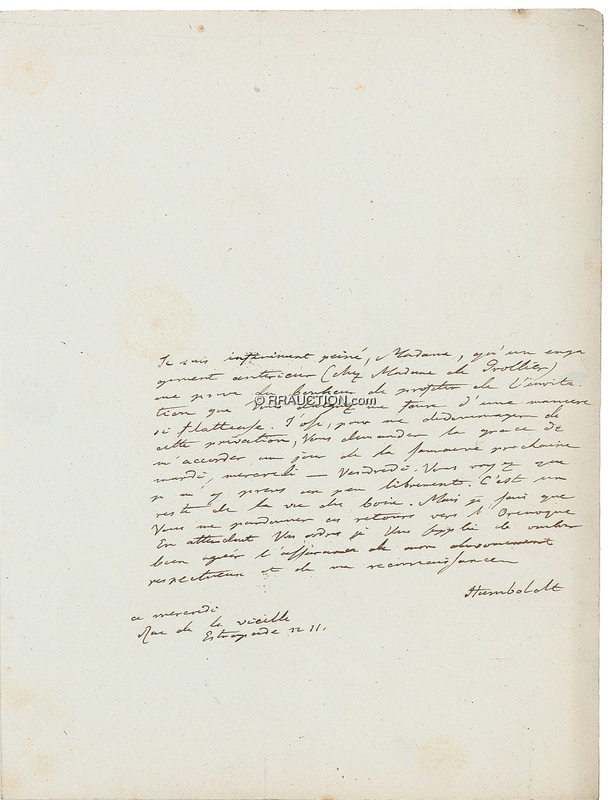 Je suis infiniment peiné, Madame, qu'un enga
gement antérieur (chez Madame de Trollier)
me prive du bonheur de profiter de l'invita.
© RRAUCTION.com
tion que Vous daignez me faire d'une manière
si flatteuse. J'ose, pour me dédommager de
cette privation, Vous demander la grace de
m'accorder un jour de la semaine prochaine
mardi, mercredi — Vendredi. Vous voyez que
je m'y prens un peu librement. C'est un
reste de la vie des bois. Mais je sais que
Vous me pardonner ces retours vers l'Orenoque
En attendant Vos ordres je Vous supplie de vouloir
bien agréer l'assurance de mon dévouement
respectueux et de ma reconnaissance
Humboldt
ce mercredi
Rue de la vieille
Estrapade n 11.